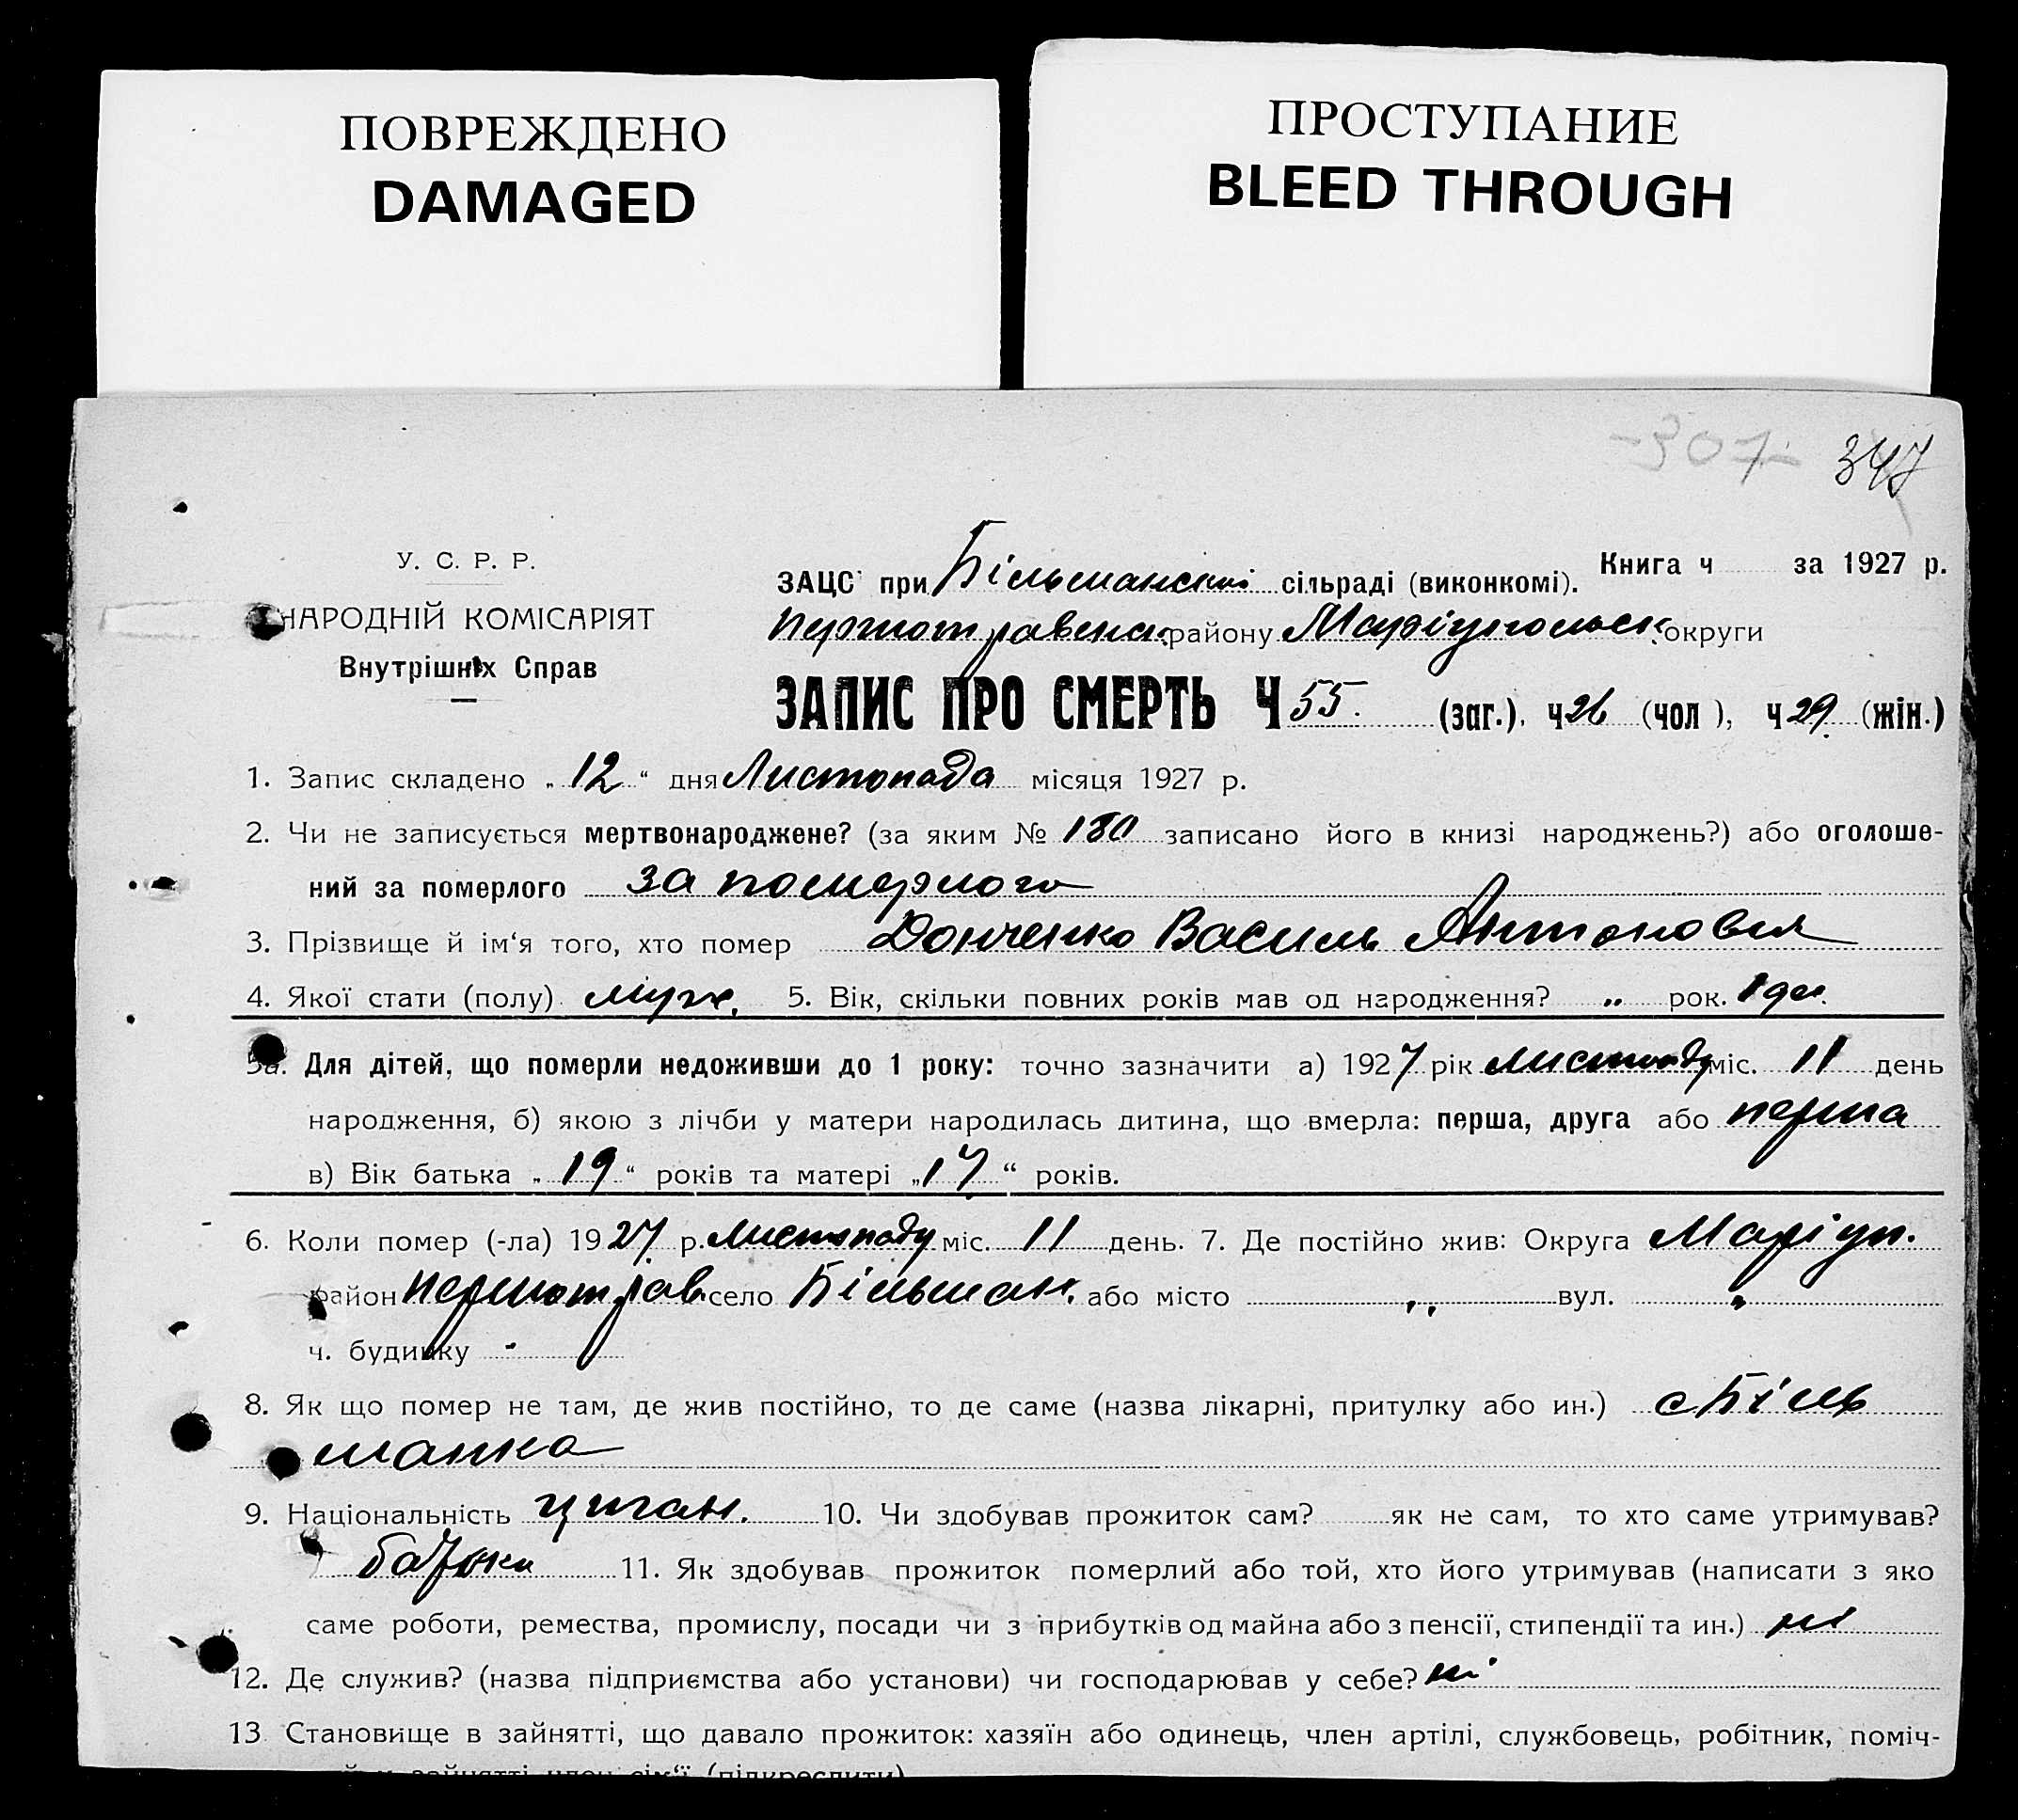 ПОВРЕЖДЕНО
DAMAGED
ПРОСТУПАНИЕ
BLEED THROUGH
-307- 347
У. С. Р. Р.
НАРОДНІЙ КОМІСАРІЯТ
Внутрішніх Справ
Книга ч за 1927 р.
ЗАЦС при Більманській сільраді (виконкомі).
Першотравенск. району Маріупольськ. округи
ЗАПИС ПРО СМЕРТЬ Ч 55. (заг.), ч 26 (чол ), ч 29. (жін.)
1. Запис складено „ 12 “ дня Листопада місяця 1927 р.
2. Чи не записується мертвонароджене? (за яким № 180 записано його в книзі народжень?) або оголоше-
ний за померлого за померлого
3. Прізвище й ім‘я того, хто помер Донченко Василь Антонович
4. Якої стати (полу) муж. 5. Вік, скільки повних років мав од народження? „ рок. 1 ден.
5а. Для дітей, що померли недоживши до 1 року: точно зазначити а) 1927 рік листопаду міс. 11 день
народження, б) якою з лічби у матери народилась дитина, що вмерла: перша, друга або перша
в) Вік батька „ 19 “ років та матері „ 17 “ років.
6. Коли помер (-ла) 1927 р. листопаду міс. 11 день. 7. Де постійно жив: Округа Маріуп.
район Першотрав. село Більман. або місто „ вул. „
ч. будинку -
8. Як що помер не там, де жив постійно, то де саме (назва лікарні, притулку або ин.) с Біль
манка
9. Національність циган. 10. Чи здобував прожиток сам? як не сам, то хто саме утримував?
батьки 11. Як здобував прожиток померлий або той, хто його утримував (написати з яко
саме роботи, ремества, промислу, посади чи з прибутків од майна або з пенсії, стипендії та ин.) ні
12. Де служив? (назва підприємства або установи) чи господарював у себе? ні
13 Становище в зайнятті, що давало прожиток: хазяїн або одинець, член артілі, службовець, робітник, поміч-
зайнятті член сім‘ї (підкреслити)